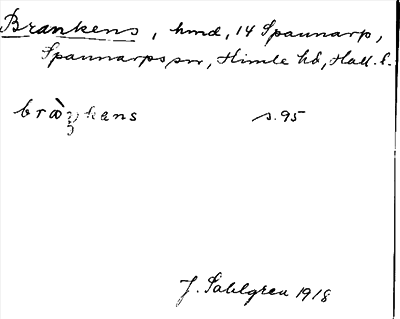 Brankens, hmd, 14 Spannarp,
Spannarps sn, Himle hd, Hall. l.
kans s. 95
J. Sahlgren 1918